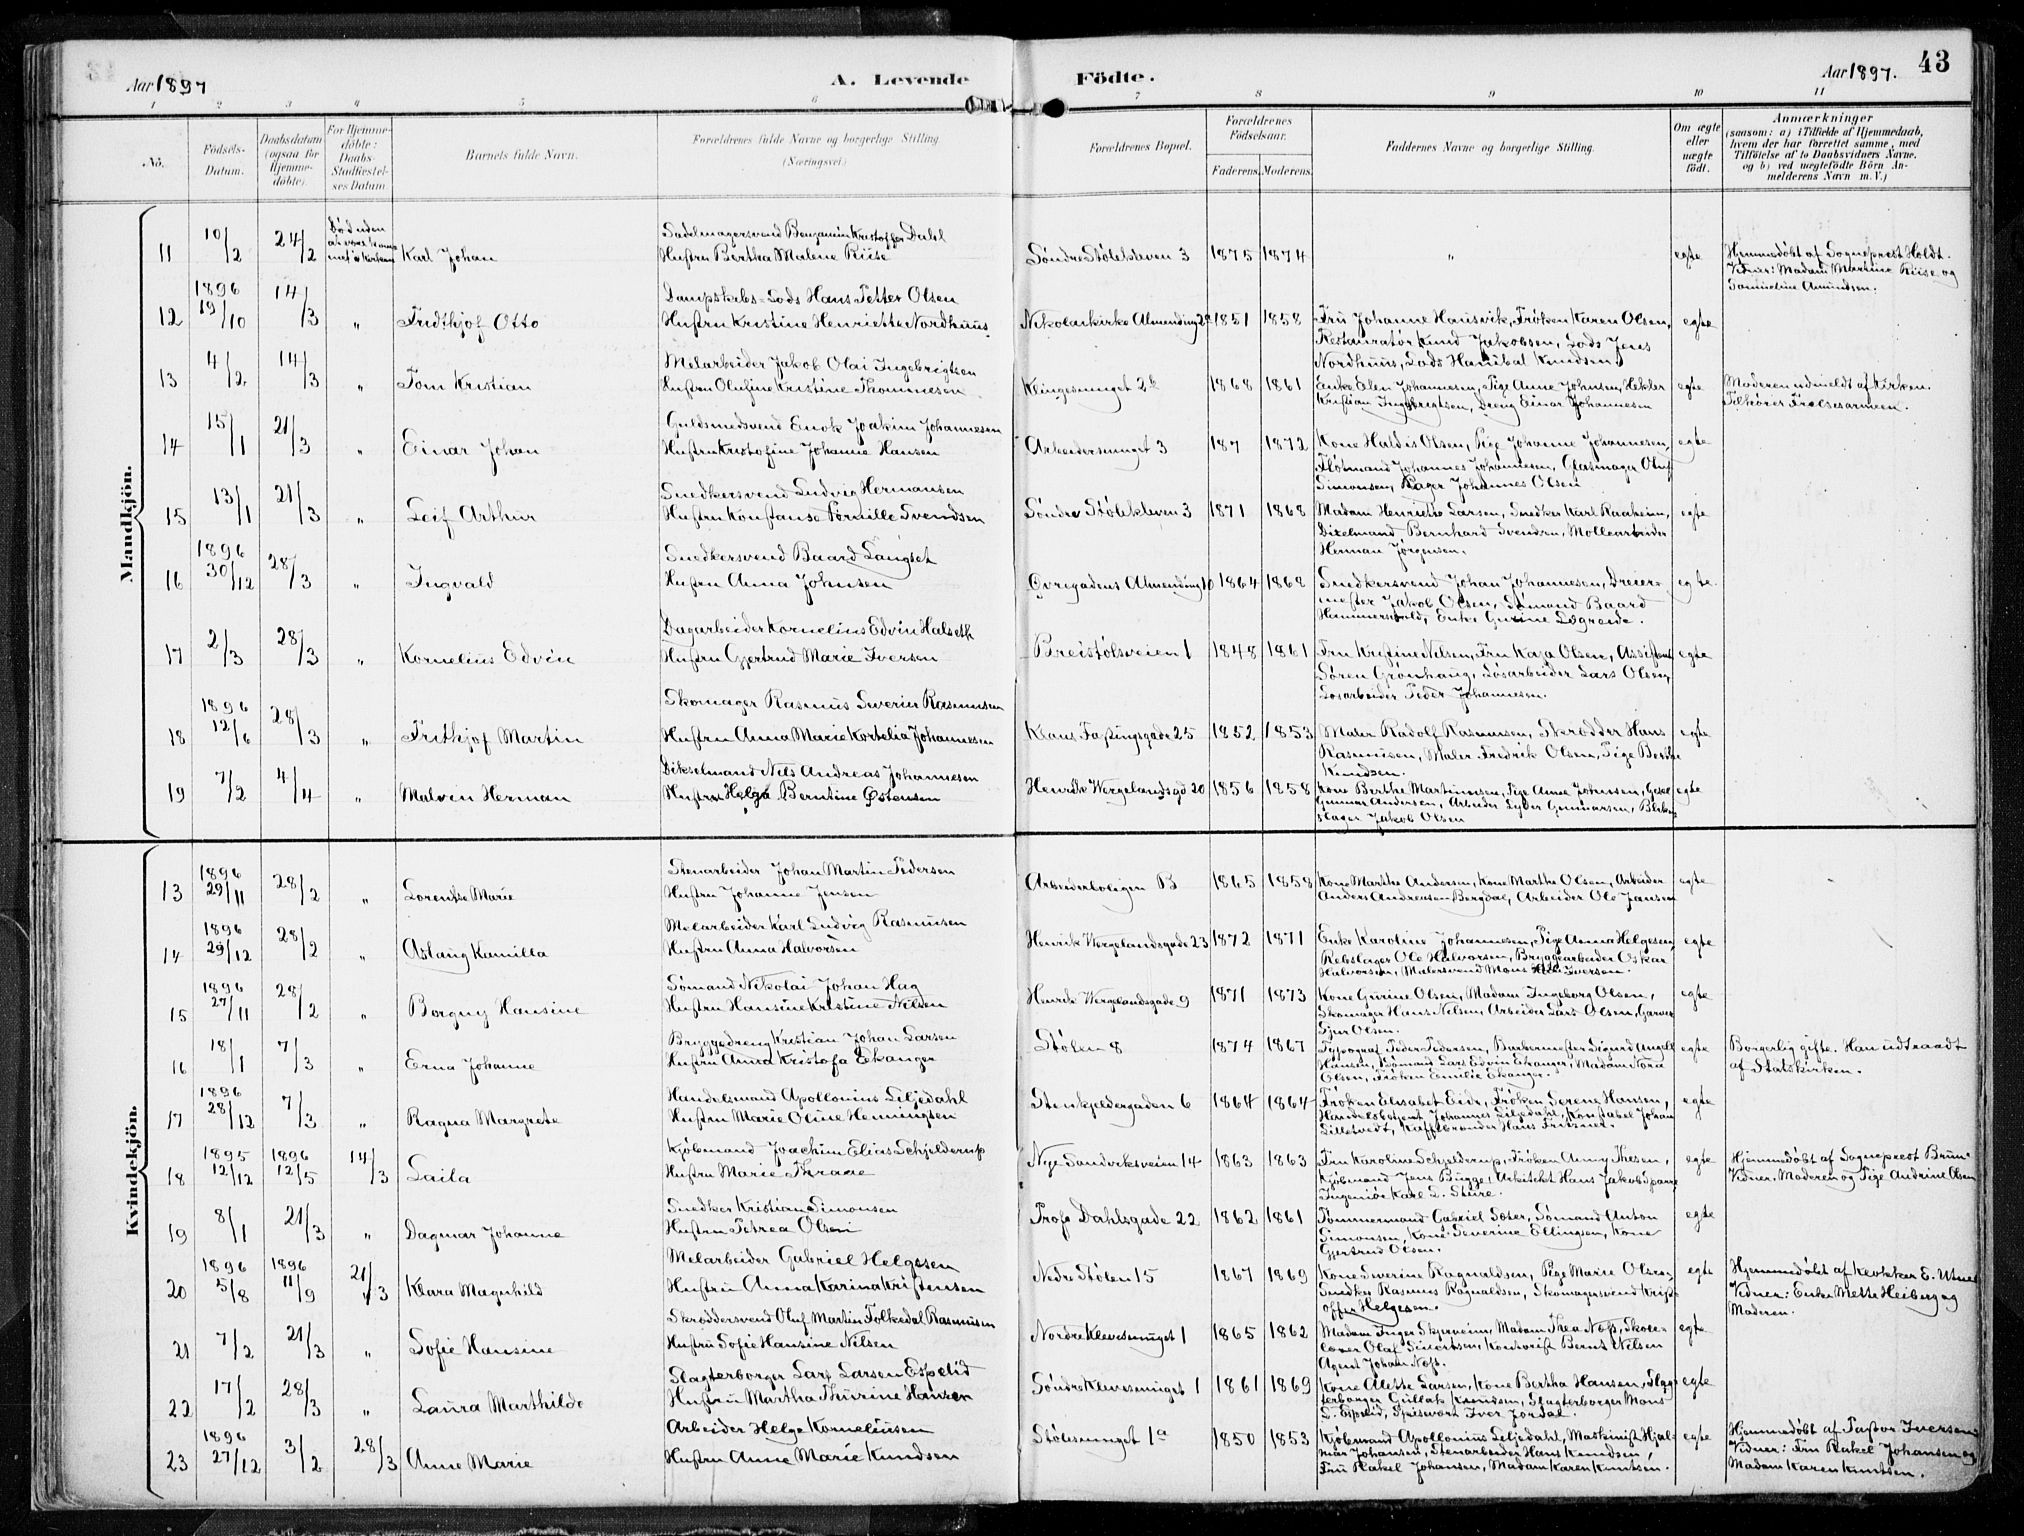 Aar 1897
A. Levende
Födte.
Aar 1897.
43
1 2 3 4 5 6 7 8 9 10 11
No.
Födsels-
Datum.
Daabsdatum
(ogsaa for
Hjemme-
döbte).
For Hjemme-
döbte:
Daabs-
Stadfæstel-
ses Datum
Barnets fulde Navn.
Forældrenes fulde Navne og borgerlige Stilling.
(Næringsvei.)
Forældrenes Bopæl.
Forældrenes
Födselsaar.
Faderens. Moderens.
Faddernes Navne og borgerlige Stilling.
Om ægte
eller
uægte
födt.
Anmærkninger
(saasom: a) i Tilfælde af Hjemmedaab,
hvem der har forrettet samme, med
Tilföielse af to Daabsvidners Navne.
og b) ved uægtefödte Börn An-
melderens Navn m. V.)
Mandkjön.
11 10/2 24/2 Død uden
Karl Johan
Sadelmagersvend Benjamin Kristoffer Dahl
Hustru Bertha Malene Riise
Søndre Stølekleven 3 1875 1874 " egte
Hjemmedøbt af Sogneprest Holdt.
Vidner: Madam Martine Riise og
Amundsen.
12 1896 19/10 14/3 " Fridthjof Otto
Dampskibs-Lods Hans Petter Olsen
Hustru Kristine Henriette Nordhuus
Nikolaikirke Almending 2a 1851 1858
Fru Johanne Hausvik, Frøken Karen Olsen,
Restauratør Knud Jakobsen, Lods Jens
Nordhuus, Lods Hanibal Knudsen
egte
13 4/2 14/3 " Tom Kristian
Milarbeider Jakob Olai Ingebrigtsen
Hustru Olufine Kristine Thommesen
Klingesmuget 2b 1868 1861
Enke Elen Johannesen, Pige Anne Johnsen, Hekler
Kristian Ingebrigtsen, Dreng Einar Johannesen
egte
Moderen udmeldt af Kirken.
Tilhører Frelsesarmeen.
14 15/1 21/3 " Einar Johan
Guldsmedsvend Enok Joakim Johannesen
Hustru Kristofine Johanne Hansen
Arbeidersmuget 3 187 1872
Kone Haldis Olsen, Pige Johanne Johannesen,
Fløtmand Johannes Johannesen, Glasmager Oluf
Simonsen, Bager Johannes Olsen
egte
15 13/1 21/3 " Leif Arthur
Snedkersvend Ludvig Hermansen
Hustru Konstanse Pernille Svendsen
Søndre Stølekleven 3 1871 1868
Madam Henriette Larsen, Snedker Karl Raaheim,
Dixelmand Bernhard Svendsen, Møllearbeider
Herman Jørgensen.
egte
16 1896 30/12 28/3 " Ingvald
Snedkersvend Baard Langset
Hustru Anna Johnsen
Øvregadens Almending 10 1864 1862
Snedkersvend Johan Johannesen, Dreier-
mester Jakob Olsen, Sømand Baard
Hammersvold, Enke Gurine Løgreide.
egte.
17 2/3 28/3 " Kornelius Edvin
Dagarbeider Kornelius Edvin Halseth
Hustru Gjertrud Marie Iversen
Breistølsveien 1 1848 1861
Fru Kristine Nilsen, Fru Kaja Olsen, Assistent
Søren Grønhaug, Løsarbeider Lars Olsen,
Løsarbeider Peder Johannesen.
egte
18 1896 12/6 28/3 " Fritkjof Martin
Skomager Rasmus Severin Rasmussen
Hustru Anna Marie Kornelia Johannesen
Klaus Fastingsgade 25 1852 1853
Maler Radolf Rasmusen, Skrødder Hans
Rasmusen, Maler Fredrik Olsen, Pige Berthe
Knudsen.
egte
19 7/2 4/4 " Malvin Herman
Dikselmand Nils Andreas Johannesen
Hustru Helga Berntine Østensen
Henrik Wergelandsgd 20 1856 1858
Kone Berthe Martinusen, Pige Anne Johnsen,
Gunnar Andersen, Arbeider Lyder Gunnarsen, Blikken-
slager Jakob Olsen
egte
Kvindekjön.
13 1896 29/11 28/2 " Lorentse Marie
Stenarbeider Johan Martin Pedersen
Hustru Johanne Jensen
Arbeiderboligen B 1865 1858
Kone Marthe Andersen, Kone Marthe Olsen, Arbeider
Anders Andreasen Bergdal, Arbeider Ole Jansen
egte
14 1896 29/12 28/2 " Aslaug Kamilla
Melarbeider Karl Ludvig Rasmusen
Hustru Anna Halvorsen
Henrik Wergelandsgade 23 1872 1871
Enke Karoline Johannesen, Pige Anna Helgesen,
Rebslager Ole Halvorsen, Bryggearbeider Oskar
Halvorsen, Malersvend Mons Iversen.
egte
15 1896 27/11 28/2 " Borgny Hansine
Sømand Nikolai Johan Hag
Hustru Hansine Kristine Nilsen
Henrik Wergelandsgade 9 1871 1873
Kone Gurine Olsen, Madam Ingeborg Olsen,
Skomager Hans Nilsen, Arbeider Lars Olsen, Garver
Sjur Olsen.
egte
16 18/1 7/3 " Erna Johanne
Bryggedreng Kristian Johan Larsen
Hustru Anna Kristofa Ekanger
Stølen 8 1874 1867
Typograf Peder Pedersen, Barbermester Sigurd Angell
Hansen, Sømand Lars Edvin Ekanger, Madam Nora
Olsen, Frøken Emilie Ekanger.
egte
Borgerlig gifte. Han udtraadt
af Statskirken.
17 1896 28/12 7/3 " Ragna Margrete
Handelsmand Apollonius Liljedahl
Hustru Marie Oline Henningsen
Stenkjeldergaden 6 1864 1864
Frøken Elisabet Eide, Frøken Serene Hansen,
Handelsbetjent Johannes Liljedahl, Konstabel Johan
Lilletvedt, Kaffebrænder Hans Fritzner.
egte
18 1895 12/12 1896 12/5 14/3 Laila
Kjøbmand Joachim Elias Schjelderup
Hustru Marie Thrane
Nye Sandviksveien 14 1863 1863
Fru Karoline Schjelderup, Frøken Anny Thesen,
Kjøbmand Jens Bugge, Arkitekt Hans Jakob Sparre,
Ingeniør Karl L. Sture.
egte
Hjemmedøbt af Sogneprest Brun.
Vidner. Moderen og Pige Andrine Olsen
19 8/1 21/3 " Dagmar Johanne
Snedker Kristian Simonsen
Hustru Petrea Olsen
Profs Dahlsgade 22 1862 1861
Tømmermand Gabriel Soter, Sømand Anton
Simonsen, Kone Severine Ellingsen, Kone
Gjertrud Olsen.
egte
20 1896 5/8 1896 11/9 21/3 Klara Magnhild
Melarbeider Gabriel Helgesen
Hustru Anna Karina Kristensen
Nedre Stølen 15 1867 1869
Kone Severine Ragnaldsen, Pige Marie Olsen,
Snedker Rasmus Ragnaldsen, Skomagersvend Krist-
offer Helgesen.
egte
Hjemmedøbt af Klokker E. Utnes
Vidner: Enke Mette Heiberg og
Moderen.
21 7/2 21/3 " Sofie Hansine
Skrøddersvend Oluf Martin Folkedal Rasmusen
Hustru Sofie Hansine Nilsen
Nordre Klevesmuget 1 1865 1862
Madam Inger Skjerveim, Madam Thea Næss, Skole-
lærer Olaf Sivertsen, Kontorist Bernt Nilsen
Agent Johan Næss.
egte
22 17/2 28/3 " Laura Marthilde
Slagterborger Lars Larsen Espelid
Hustru Martha Thurine Hansen
Søndre Klevesmuget 1 1861 1869
Kone Alette Larsen, Kone Bertha Hansen, Slag-
terborger Gullak Knudsen, Slagterborger Mons
L. Espelid, Spisevert Iver Jordal.
egte
23 1896 27/12 3/2 28/3 Anne Marie
Arbeider Helge Korneliussen
Hustru Anne Marie Knudsen
Stølesmuget 1a 1850 1853
Kjøbmand Apollonius Liljedahl, Maskinist Hjal-
mar Johansen, Stenarbeider Hans Knudsen,
Fru Rakel Johansen, Madam Karen Knutsen.
egte
Hjemmedøbt af Pastor Iversen
Vidner: Fru Rakel Johansen og
Madam Karen Knutsen.